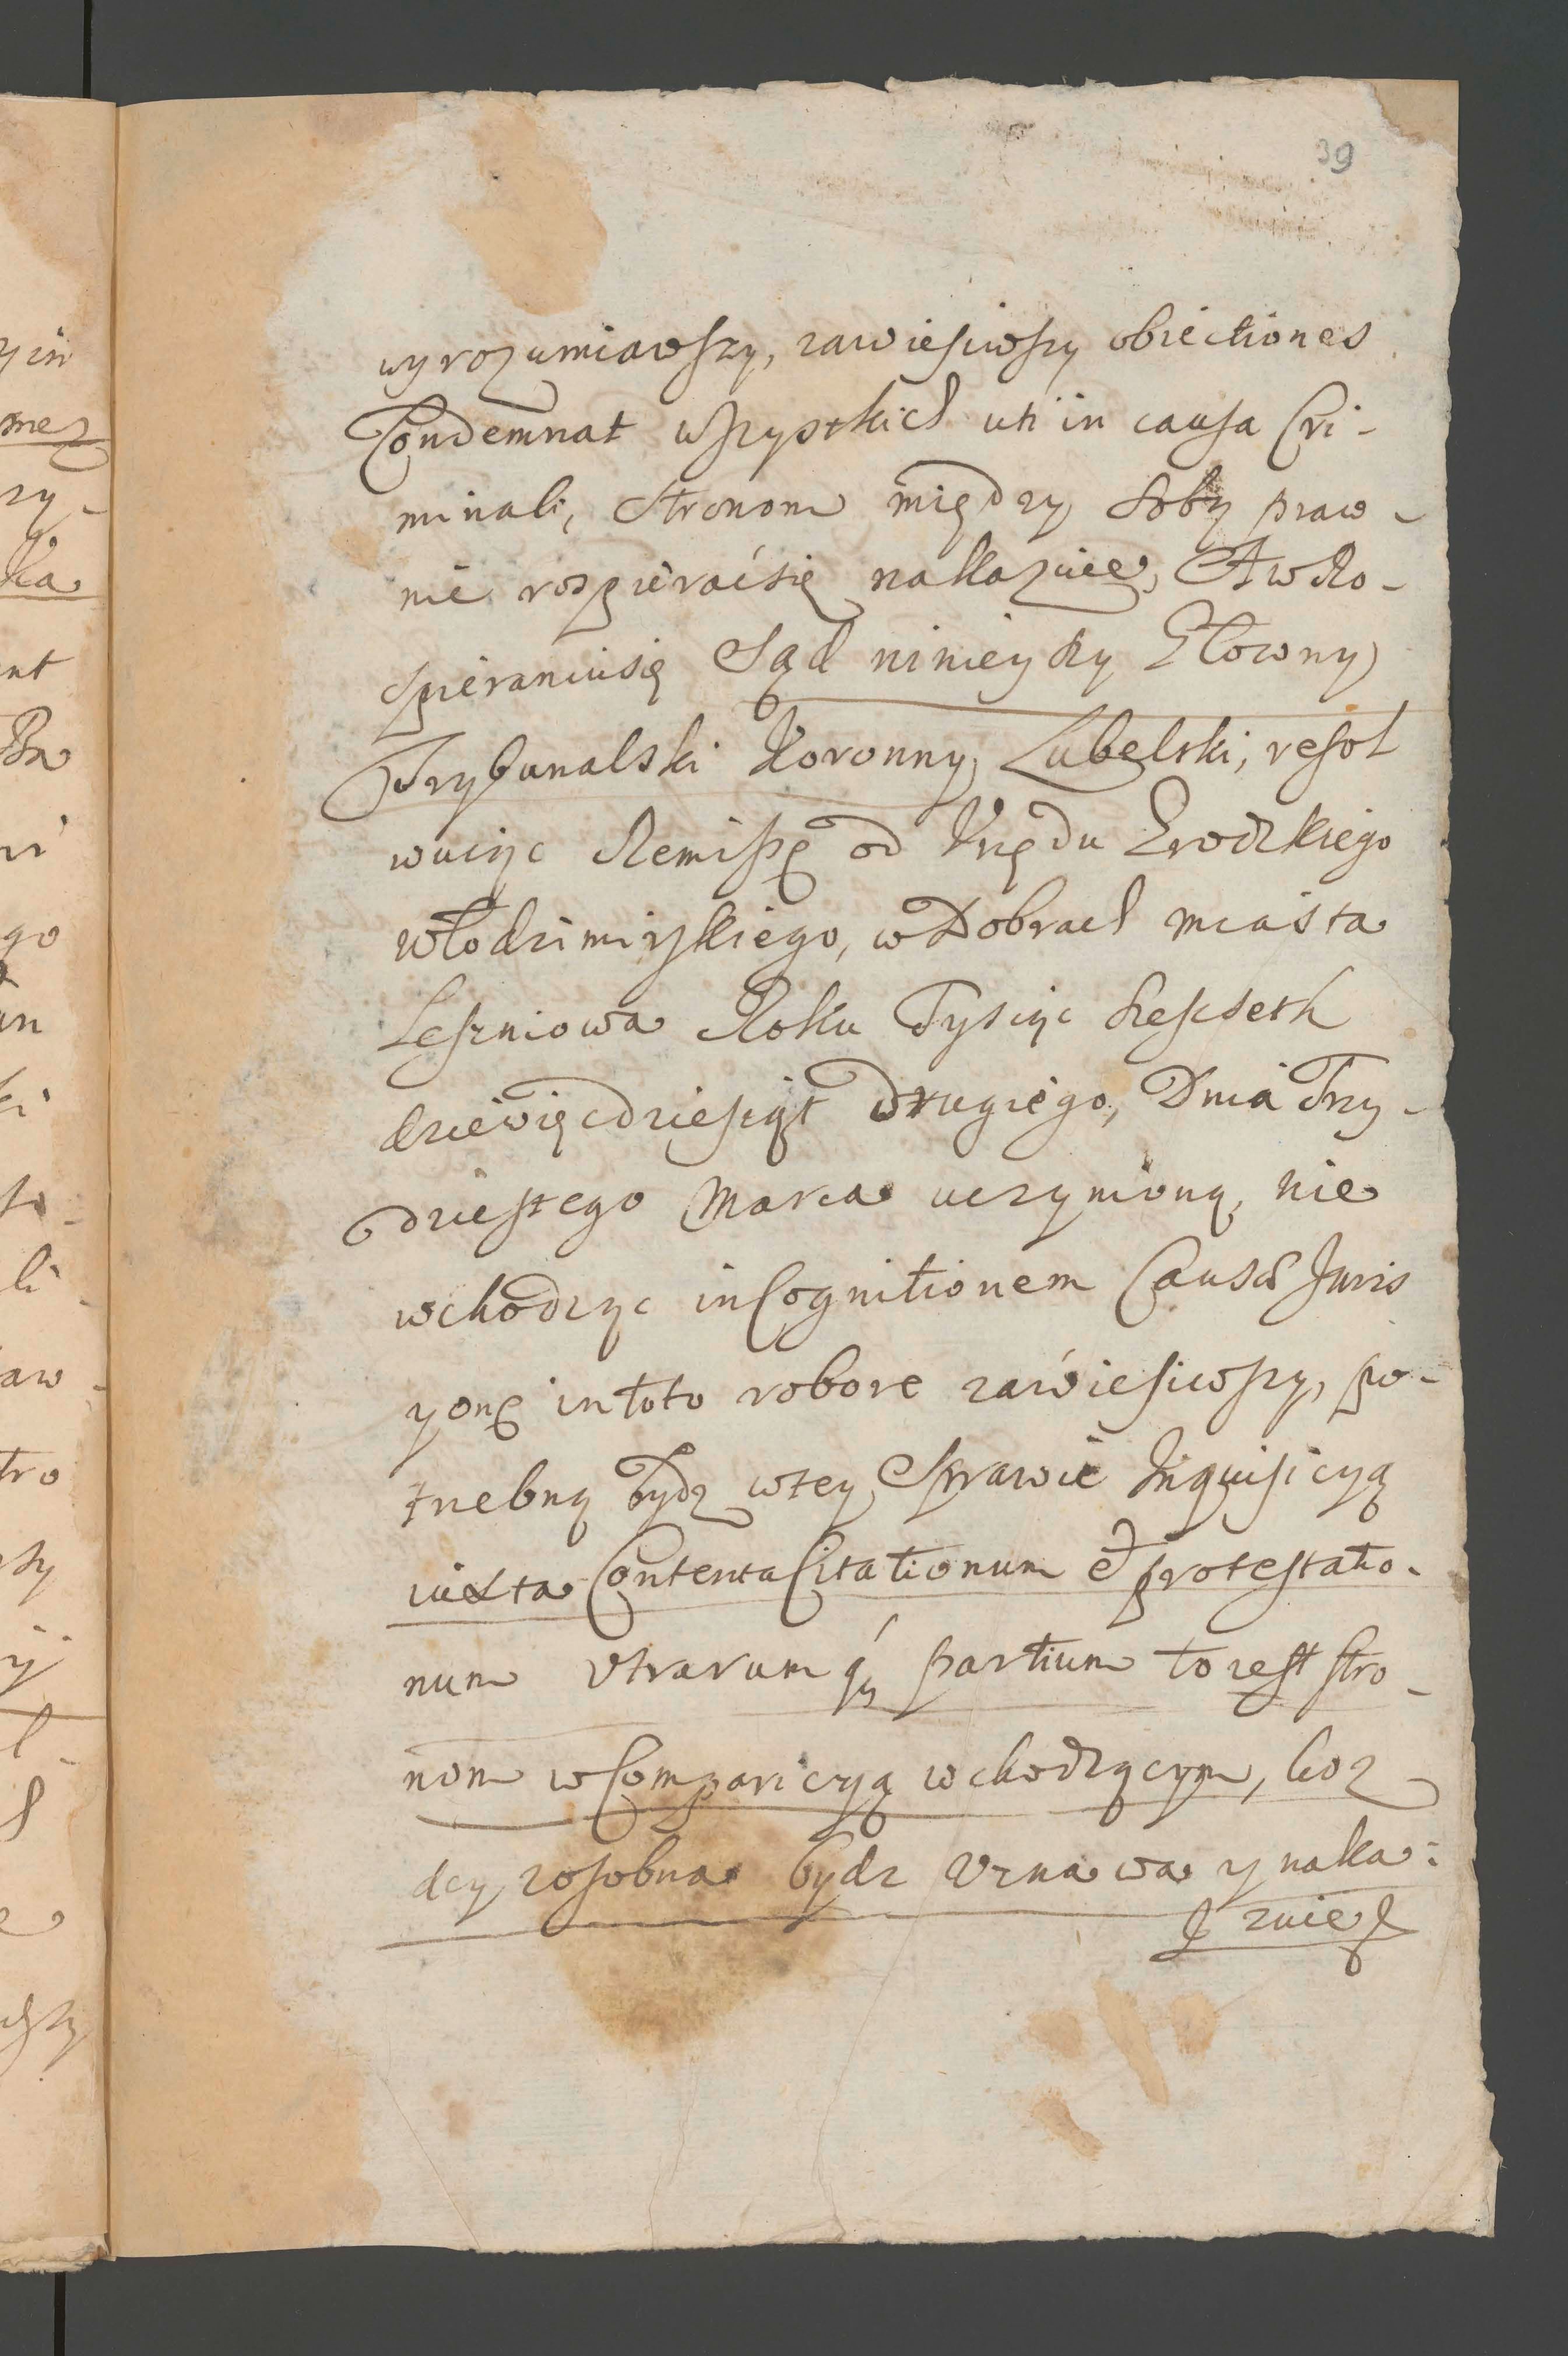 39
wyrozumiawszy, zawiesiwszy obiectiones
Condemnat wszystkich uti in causa Cri-
minali, stronom między sobą praw-
nie rozpieraćsię nakazuie, A w Ro-
spieraniusię Sąd ninieyszy Głowny
Trybunalski Koronny Lubelski, resol
wuiąc Remissę od Urzędu Grodzkiego
włodzimirskiego, w Dobrach miasta
Leszniowa Roku Tysiąc szescseth
dziewięcdziesiąt drugiego, Dnia Trzy-
dziestego Marca uczynioną, nie
wchodząc in Cognitionem Causæ Juris
y onę in toto robore zawiesiwszy, po-
trzebną bydz w tey Sprawie Inquisicyą
iuxta Contenta Citationum et protestatio-
num Utrarumq partium to iest stro-
nom w Comparicyą wchodzącym, koz
dey zosobna bydz uznawa y naka:
zuie
yin
mez
zy-
ka
nt
go
an
ki
li
aw-
tro